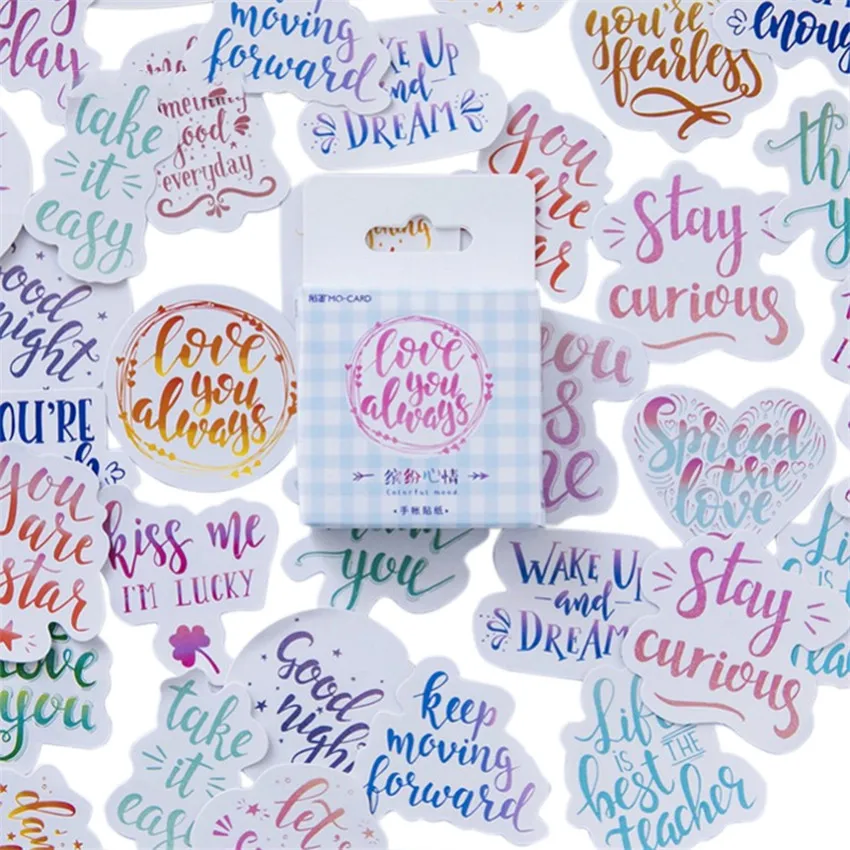 day
keep
moving
forward
WAKE UP
and
DREAM
you're
fearless
enough
take
it
easy
good
everyday
you
are
star
Stay
curious
good
night
love
you
always
陌墨 MO-CARD
love
you
always
缤纷心情
Colorful mood.
·手帐贴纸·
you
Spread
the
love
YOU'RE
you
are
star
kiss me
I'M LUCKY
you
WAKE UP
and
DREAM
Stay
curious
love
you
Good
night
take
it
easy
keep
moving
forward
Life
IS THE
best
teacher
let's